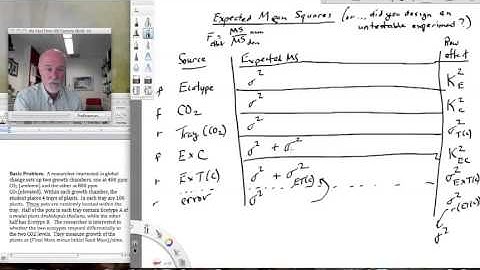 Expected Mean Squares (or ... did you design an untestable experiment?)
F = MS num
obs MS den
Source Expected MS Raw effect
f Ecotype σ² K²E
f CO₂ σ² K²C
r Tray(CO₂) σ² σ²T(C)
f E×C σ² + σ² K²EC
r E×T(C) σ² + σ²ET(C) σ²E×T(C)
r error σ² σ²r(ET(C))
σ²
Basic Problem. A researcher interested in global
change sets up two growth chambers, one at 400 ppm
CO₂ [ambient], and the other at 800 ppm
CO₂ [elevated]. Within each growth chamber, the
student places 4 trays of plants. In each tray are 100
plants. These pots are randomly located within the
tray. Half of the pots in each tray contain Ecotype A of
a model plant Arabidopsis thaliana, while the other
half has Ecotype B. The researcher is interested in
whether the two ecotypes respond differentially to
the two CO2 levels. They measure growth of the
plants as (Final Mass minus Initial Seed Mass)/time.